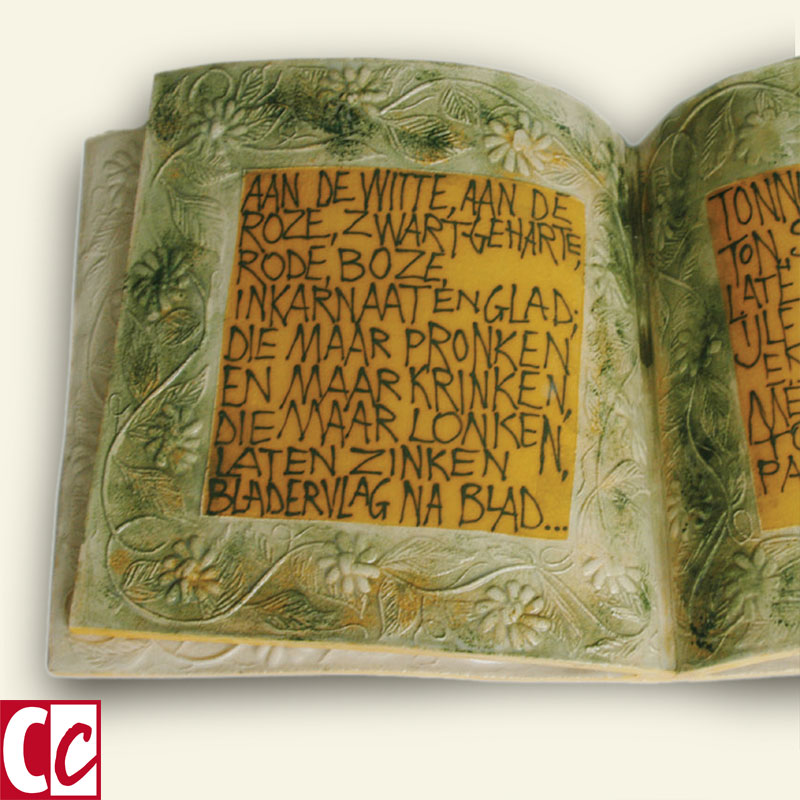 AAN DE WITTE, AAN DE
ROZE, ZWART-GEHARTE,
RODE, BOZE,
INKARNAAT EN GLAD;
DIE MAAR PRONKEN
EN MAAR KRINKEN,
DIE MAAR LONKEN,
LATEN ZINKEN
BLADERVLAG NA BLAD...
TONN
TON
LATE
Cc